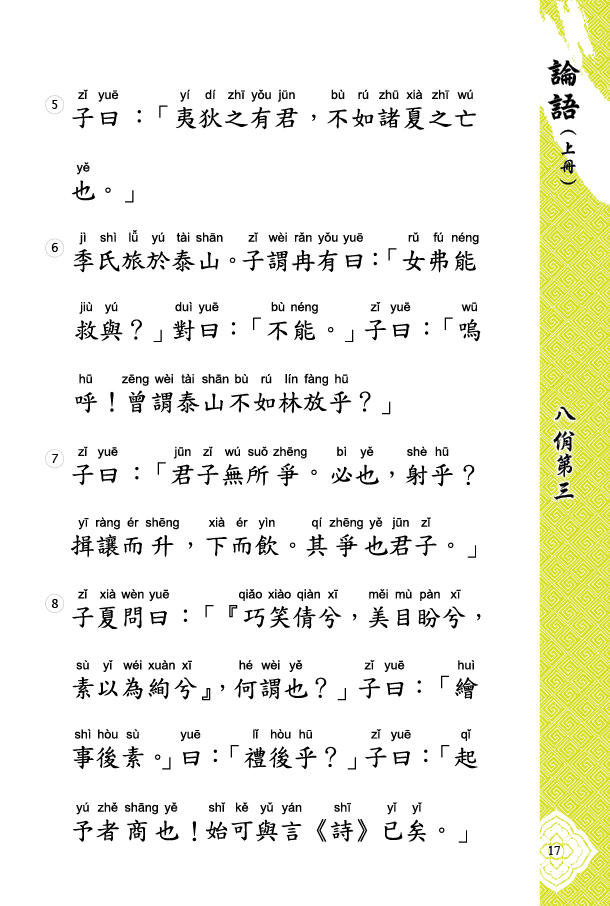 zǐ yuē yí dí zhī yǒu jūn bù rú zhū xià zhī wú
5 子曰：「夷狄之有君，不如諸夏之亡
yě
也。」
jì shì lǚ yú tài shān zǐ wèi rǎn yǒu yuē rǔ fú néng
6 季氏旅於泰山。子謂冉有曰：「女弗能
jiù yú duì yuē bù néng zǐ yuē wū
救與？」對曰：「不能。」子曰：「嗚
hū zēng wèi tài shān bù rú lín fàng hū
呼！曾謂泰山不如林放乎？」
zǐ yuē jūn zǐ wú suǒ zhēng bì yě shè hū
7 子曰：「君子無所爭。必也，射乎？
yī ràng ér shēng xià ér yìn qí zhēng yě jūn zǐ
揖讓而升，下而飲。其爭也君子。」
zǐ xià wèn yuē qiǎo xiào qiàn xī měi mù pàn xī
8 子夏問曰：「『巧笑倩兮，美目盼兮，
sù yǐ wéi xuàn xī hé wèi yě zǐ yuē huì
素以為絢兮』，何謂也？」子曰：「繪
shì hòu sù yuē lǐ hòu hū zǐ yuē qǐ
事後素。」曰：「禮後乎？」子曰：「起
yú zhě shāng yě shǐ kě yǔ yán shī yǐ yǐ
予者商也！始可與言《詩》已矣。」
論語（上冊）
八佾第三
17